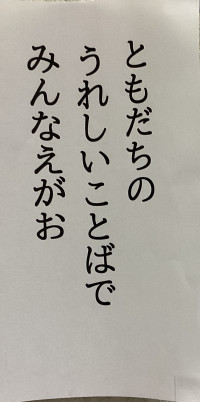 ともだちの
うれしいことばで
みんなえがお